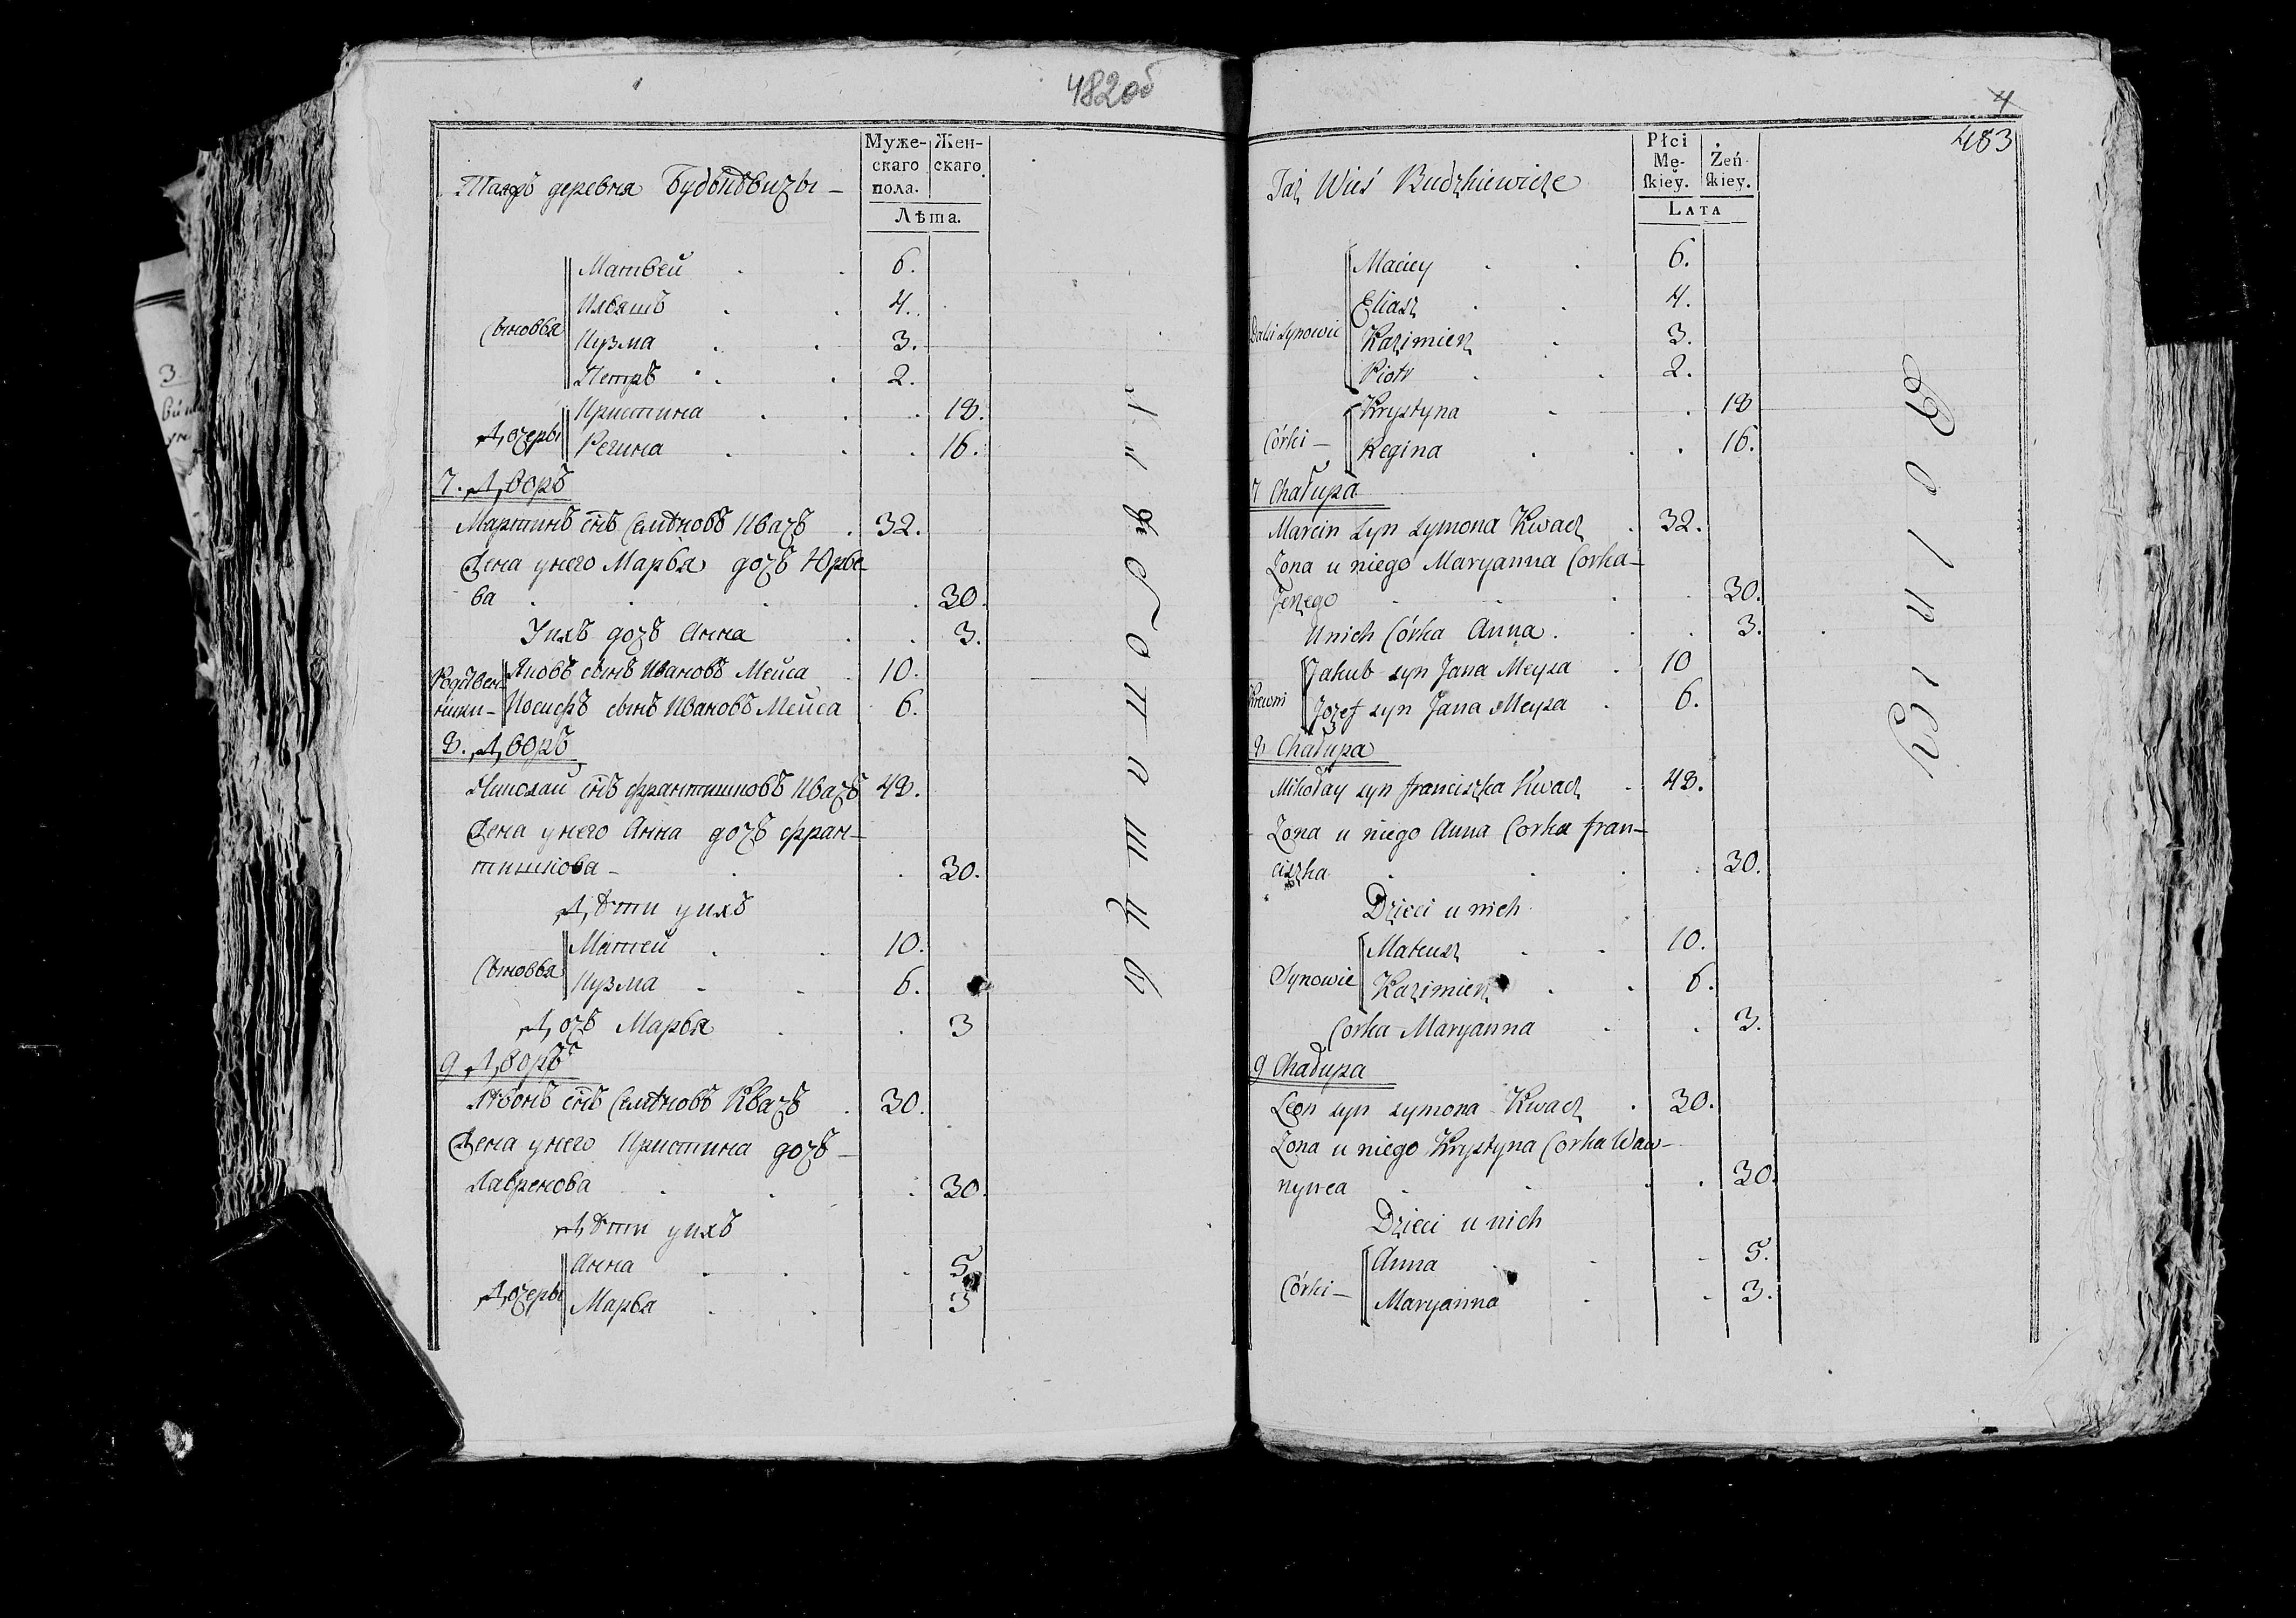 482об
Таяжъ деревня
Муже-
скаго
пола.
Жен-
скаго.
Лѣта.
Сыновья
Матвей 6.
Ильяшъ 4.
Кузма 3.
Петръ 2.
Дочеры
Кристина 18.
Регина 16.
7. Дворъ
Мартинъ снъ Семіновъ Квачъ 32.
Жена унего Марья дочь Юрье-
ва 30.
Унихъ дочь Анна 3.
Родствен-
ники-
Яковъ сынъ Ивановъ Мейса 10.
Иосифъ сынъ Ивановъ Мейса 6.
8. Дворъ
Николай снъ Франтишковъ Квачъ 48.
Жена унего Анна дочь Фран-
тишкова- 30.
Дѣти унихъ
Сыновья
Матей 10.
Кузма 6.
Дочь Марья 3
9 Дворъ
Лѣвонъ снъ Семіновъ Квачъ 30.
Жена унего Кристина дочь-
Лавренова 30.
Дѣти унихъ
Дочеры
Анна 5
Марья 3
4
483
Taż Wieś Budzkiewicze
Płci
Mę-
skiey.
Żeń-
skiey.
LATA
Dalsi Synowie
Maciey 6.
Eliasz 4.
Kazimierz 3.
Piotr 2.
Córki -
Krystyna 18
Regina 16.
7 Chałupa
Marcin syn Symona Kwacz 32.
Zona u niego Maryanna Corka-
Jerzego 30.
U nich Córka Anna. 3.
Krewni
Jakub syn Jana Meysa 10
Jozef syn Jana Meysa 6.
8 Chałupa
Mikołay syn Franciszka Kwacz 48.
Zona u niego Anna Corka Fran-
ciszka 30.
Dzieci u nich
Synowie
Mateusz 10.
Kazimierz 6.
Corka Maryanna 3.
9 Chałupa
Leon syn Symona Kwacz 30.
Zona u niego Krystyna Corka Waw-
rzynca 30.
Dzieci u nich
Córki -
Anna 5.
Maryanna 3.